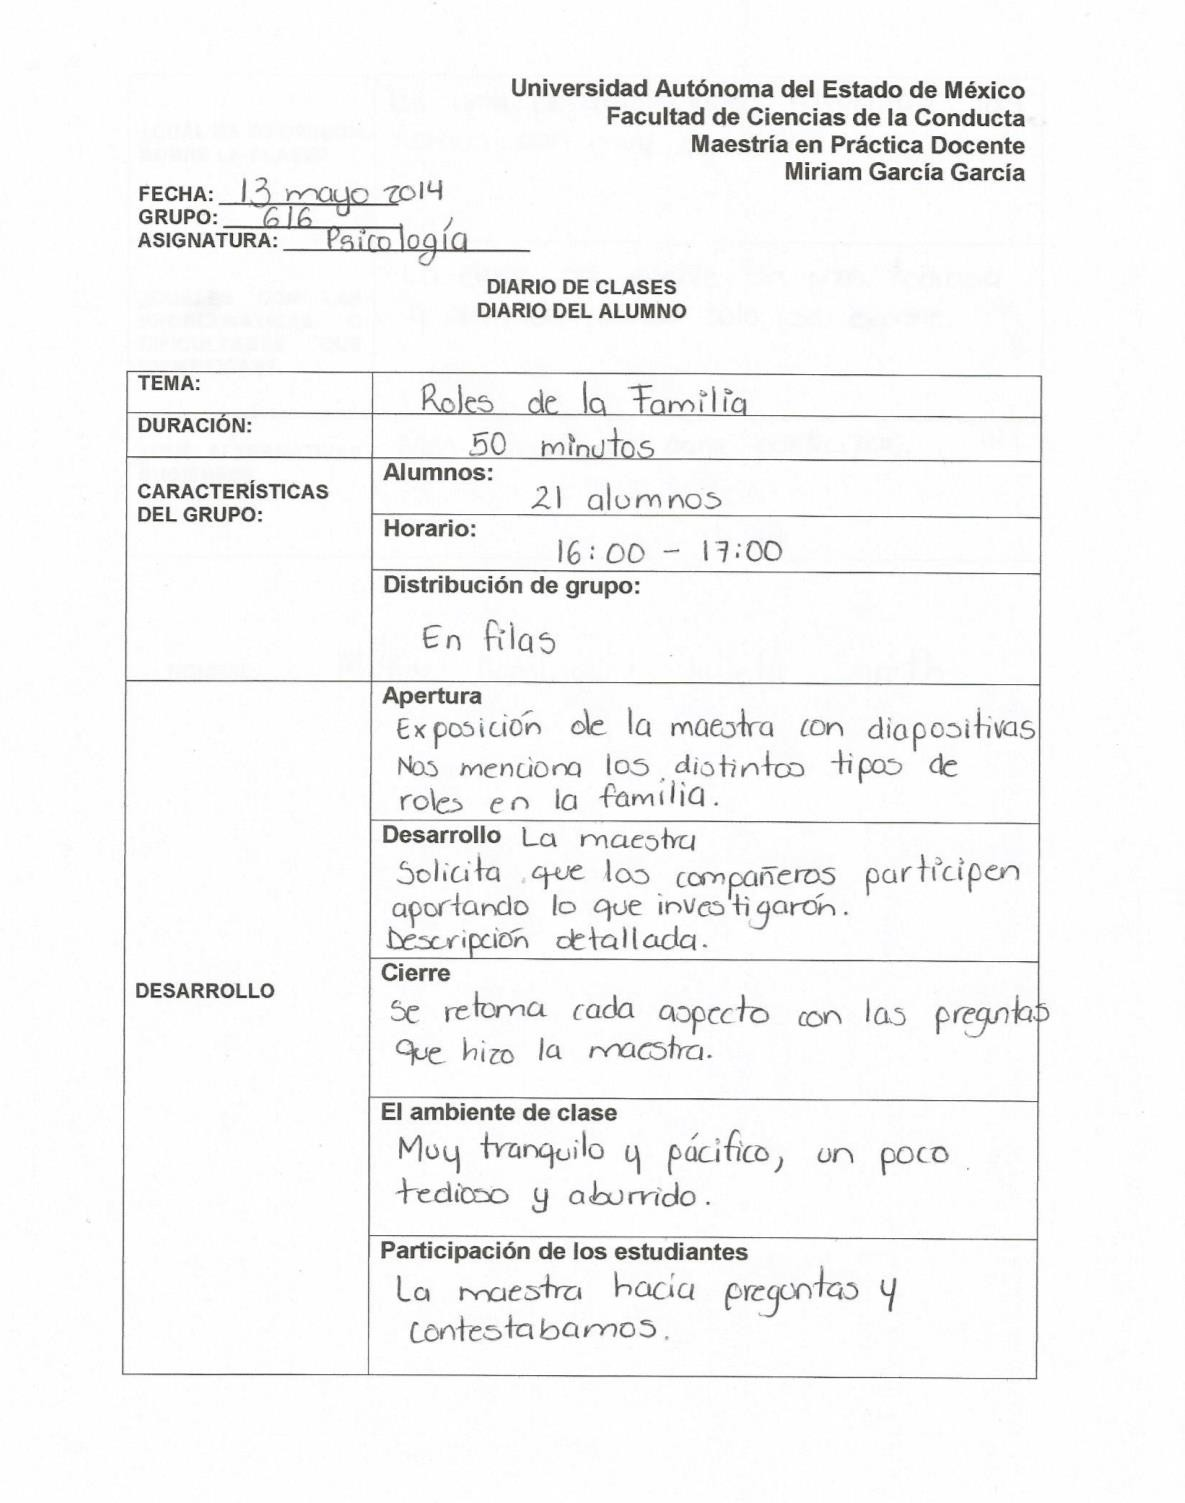 Universidad Autónoma del Estado de México
Facultad de Ciencias de la Conducta
Maestría en Práctica Docente
Miriam García García
FECHA: 13 mayo 2014
GRUPO: 616
ASIGNATURA: Psicología
DIARIO DE CLASES
DIARIO DEL ALUMNO
TEMA: Roles de la Familia
DURACIÓN: 50 minutos
CARACTERÍSTICAS
DEL GRUPO:
Alumnos:
21 alumnos
Horario:
16:00 - 17:00
Distribución de grupo:
En filas
DESARROLLO
Apertura
Exposición de la maestra con diapositivas
Nos menciona los distintos tipos de
roles en la familia.
Desarrollo La maestra
Solicita que los compañeros participen
aportando lo que investigarón.
Descripción detallada.
Cierre
Se retoma cada aspecto con las preguntas
que hizo la maestra.
El ambiente de clase
Muy tranquilo y pácifico, un poco
tedioso y aburrido.
Participación de los estudiantes
La maestra hacía preguntas y
contestabamos.